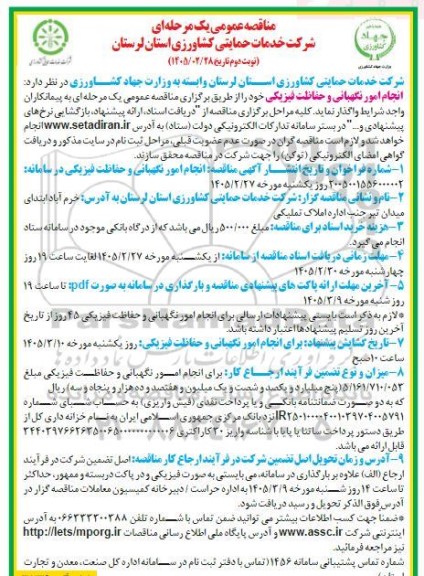 مناقصه عمومی یک مرحله‌ای
شرکت خدمات حمایتی کشاورزی استان لرستان
(نوبت دوم تاریخ ۱۴۰۵/۰۲/۲۸)
شرکت خدمات حمایتی کشاورزی استان لرستان وابسته به وزارت جهاد کشاورزی در نظر دارد:
انجام امور نگهبانی و حفاظت فیزیکی خود را از طریق برگزاری مناقصه عمومی یک مرحله‌ای به پیمانکاران
واجد شرایط واگذار نماید. کلیه مراحل برگزاری مناقصه از "دریافت اسناد، ارائه پیشنهاد، بازگشایی نرخ‌های
پیشنهادی و..." در بستر سامانه تدارکات الکترونیکی دولت (ستاد) به آدرس www.setadiran.ir انجام
خواهد شد و لازم است مناقصه گران در صورت عدم عضویت قبلی، مراحل ثبت نام در سایت مذکور و دریافت
گواهی امضای الکترونیکی (توکن) را جهت شرکت در مناقصه محقق سازند.
۱-شماره فراخوان و تاریخ انتشار آگهی مناقصه: انجام امور نگهبانی و حفاظت فیزیکی در سامانه:
۲۰۰۵۰۰۱۵۵۶۰۰۰۰۰۲ روز یکشنبه مورخه ۱۴۰۵/۲/۲۷
۲-نام و نشانی مناقصه گزار: شرکت خدمات حمایتی کشاورزی استان لرستان به آدرس: خرم آباد ابتدای
میدان تیر جنب اداره املاک تملیکی
۳-هزینه خرید اسناد برای مناقصه: مبلغ ۵۰۰/۰۰۰ ریال می باشد که از درگاه بانکی موجود در سامانه ستاد
انجام می گیرد.
۴-مهلت زمانی دریافت اسناد مناقصه از سامانه: از یکشنبه مورخه ۱۴۰۵/۲/۲۷ لغایت ساعت ۱۹ روز
چهارشنبه مورخه ۱۴۰۵/۲/۳۰
۵-آخرین مهلت ارائه پاکت های پیشنهادی مناقصه و بارگذاری در سامانه به صورت pdf: تا ساعت ۱۹
روز شنبه مورخه ۱۴۰۵/۳/۹
*لازم به ذکر است بایستی پیشنهادات ارسالی برای انجام امور نگهبانی و حفاظت فیزیکی ۴۵ روز از تاریخ
آخرین روز تسلیم پیشنهادها اعتبار داشته باشد.
۷-تاریخ گشایش پیشنهاد: برای انجام امور نگهبانی و حفاظت فیزیکی: روز یکشنبه مورخه ۱۴۰۵/۳/۱۰
ساعت ۱۰ صبح
۸-میزان و نوع تضمین فرآیند ارجاع کار: برای انجام امور نگهبانی و حفاظت فیزیکی مبلغ
۵/۱۶۱/۷۱۰/۰۵۳ (پنج میلیارد و یکصد و شصت و یک میلیون و هفتصد و ده هزار و پنجاه و سه) ریال
که به دو صورت ضمانتنامه بانکی و یا پرداخت نقدی (فیش واریزی) به حساب شبای شماره
نزد بانک مرکزی جمهوری اسلامی ایران به نام خزانه داری کل از
طریق دستور پرداخت ساتنا یا پایا با شناسه واریز ۳۰ کاراکتری
قابل ارائه می باشد.
۹-آدرس و زمان تحویل اصل تضمین شرکت در فرآیند ارجاع کار مناقصه: اصل تضمین شرکت در فرآیند
ارجاع (الف) علاوه بر بارگذاری در سامانه، می بایستی به صورت فیزیکی و در پاکت دربسته و ممهور، حداکثر
تا ساعت ۱۴ روز شنبه مورخه ۱۴۰۵/۳/۹ به اداره حراست / دبیرخانه کمیسیون معاملات مناقصه گزار در
آدرس فوق الذکر تحویل و رسید دریافت شود.
*ضمنا جهت کسب اطلاعات بیشتر می توانید ضمن تماس با شماره تلفن ۰۶۶۳۳۳۰۰۳۸۸ به آدرس
اینترنتی شرکت www.assc.ir و آدرس پایگاه ملی اطلاع رسانی مناقصات http://iets/mporg.ir
نیز مراجعه فرمائید.
شماره تماس پشتیبانی سامانه ۱۴۵۶ (تماس با دفتر ثبت نام در سامانه اداره کل صنعت، معدن و تجارت